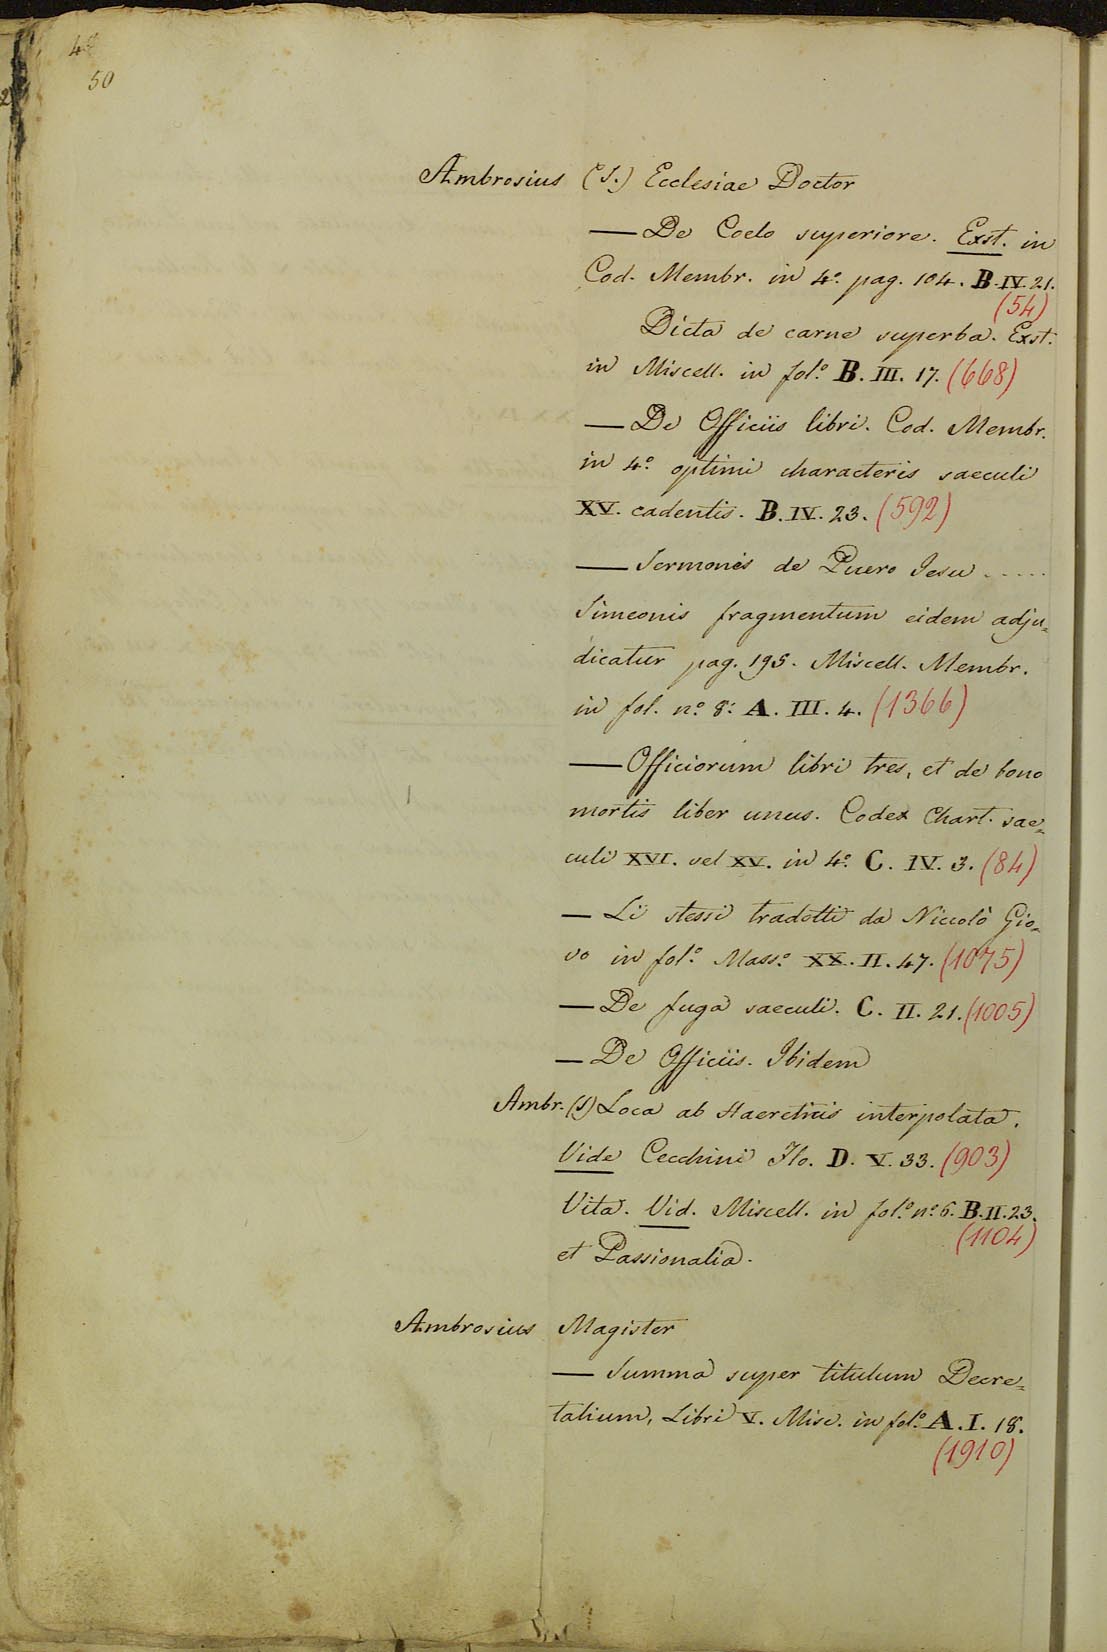 50
Ambrosius (S.) Ecclesiae Doctor
— De Coelo superiore. Exst. in
Cod. Membr. in 4º. pag. 104. B. IV. 21.
(54)
Dicta de carne superba. Exst.
in Miscell. in fol.º B. III. 17. (668)
— De Officiis libri. Cod. Membr.
in 4º. optimi characteris saeculi
XV. cadentis. B. IV. 23. (592)
— Sermonis de Puero Jesu .....
Simeonis fragmentum eidem adju=
dicatur pag. 195. Miscell. Membr.
in fol. nº. 8: A. III. 4. (1366)
— Officiorum libri tres, et de bono
mortis liber unus. Codex Chart. sae=
culi XVI. vel XV. in 4º. C. IV. 3. (84)
— Li stessi tradotti da Niccolò Gio=
vo in fol.º Mass.º XX. II. 47. (1075)
— De fuga saeculi. C. II. 21. (1005)
— De Officiis. Ibidem
Ambr. (S) Loca ab Haereticis interpolata.
Vide Cecchini Flo. D. V. 33. (903)
Vita. Vid. Miscell. in fol.º nº. 6. B. II. 23.
(1104)
et Passionalia.
Ambrosius Magister
— Summa super titulum Decre=
talium, Libri V. Misc. in fol.º A. I. 18.
(1910)